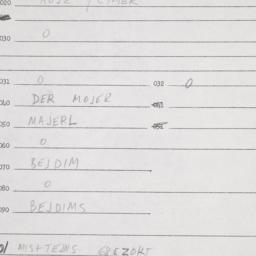 020
030 0
031 0 032 0
040 DER MOJER
050 MAJERL
060 0
070 BEJDIM
080 0
090 BEJDIMS